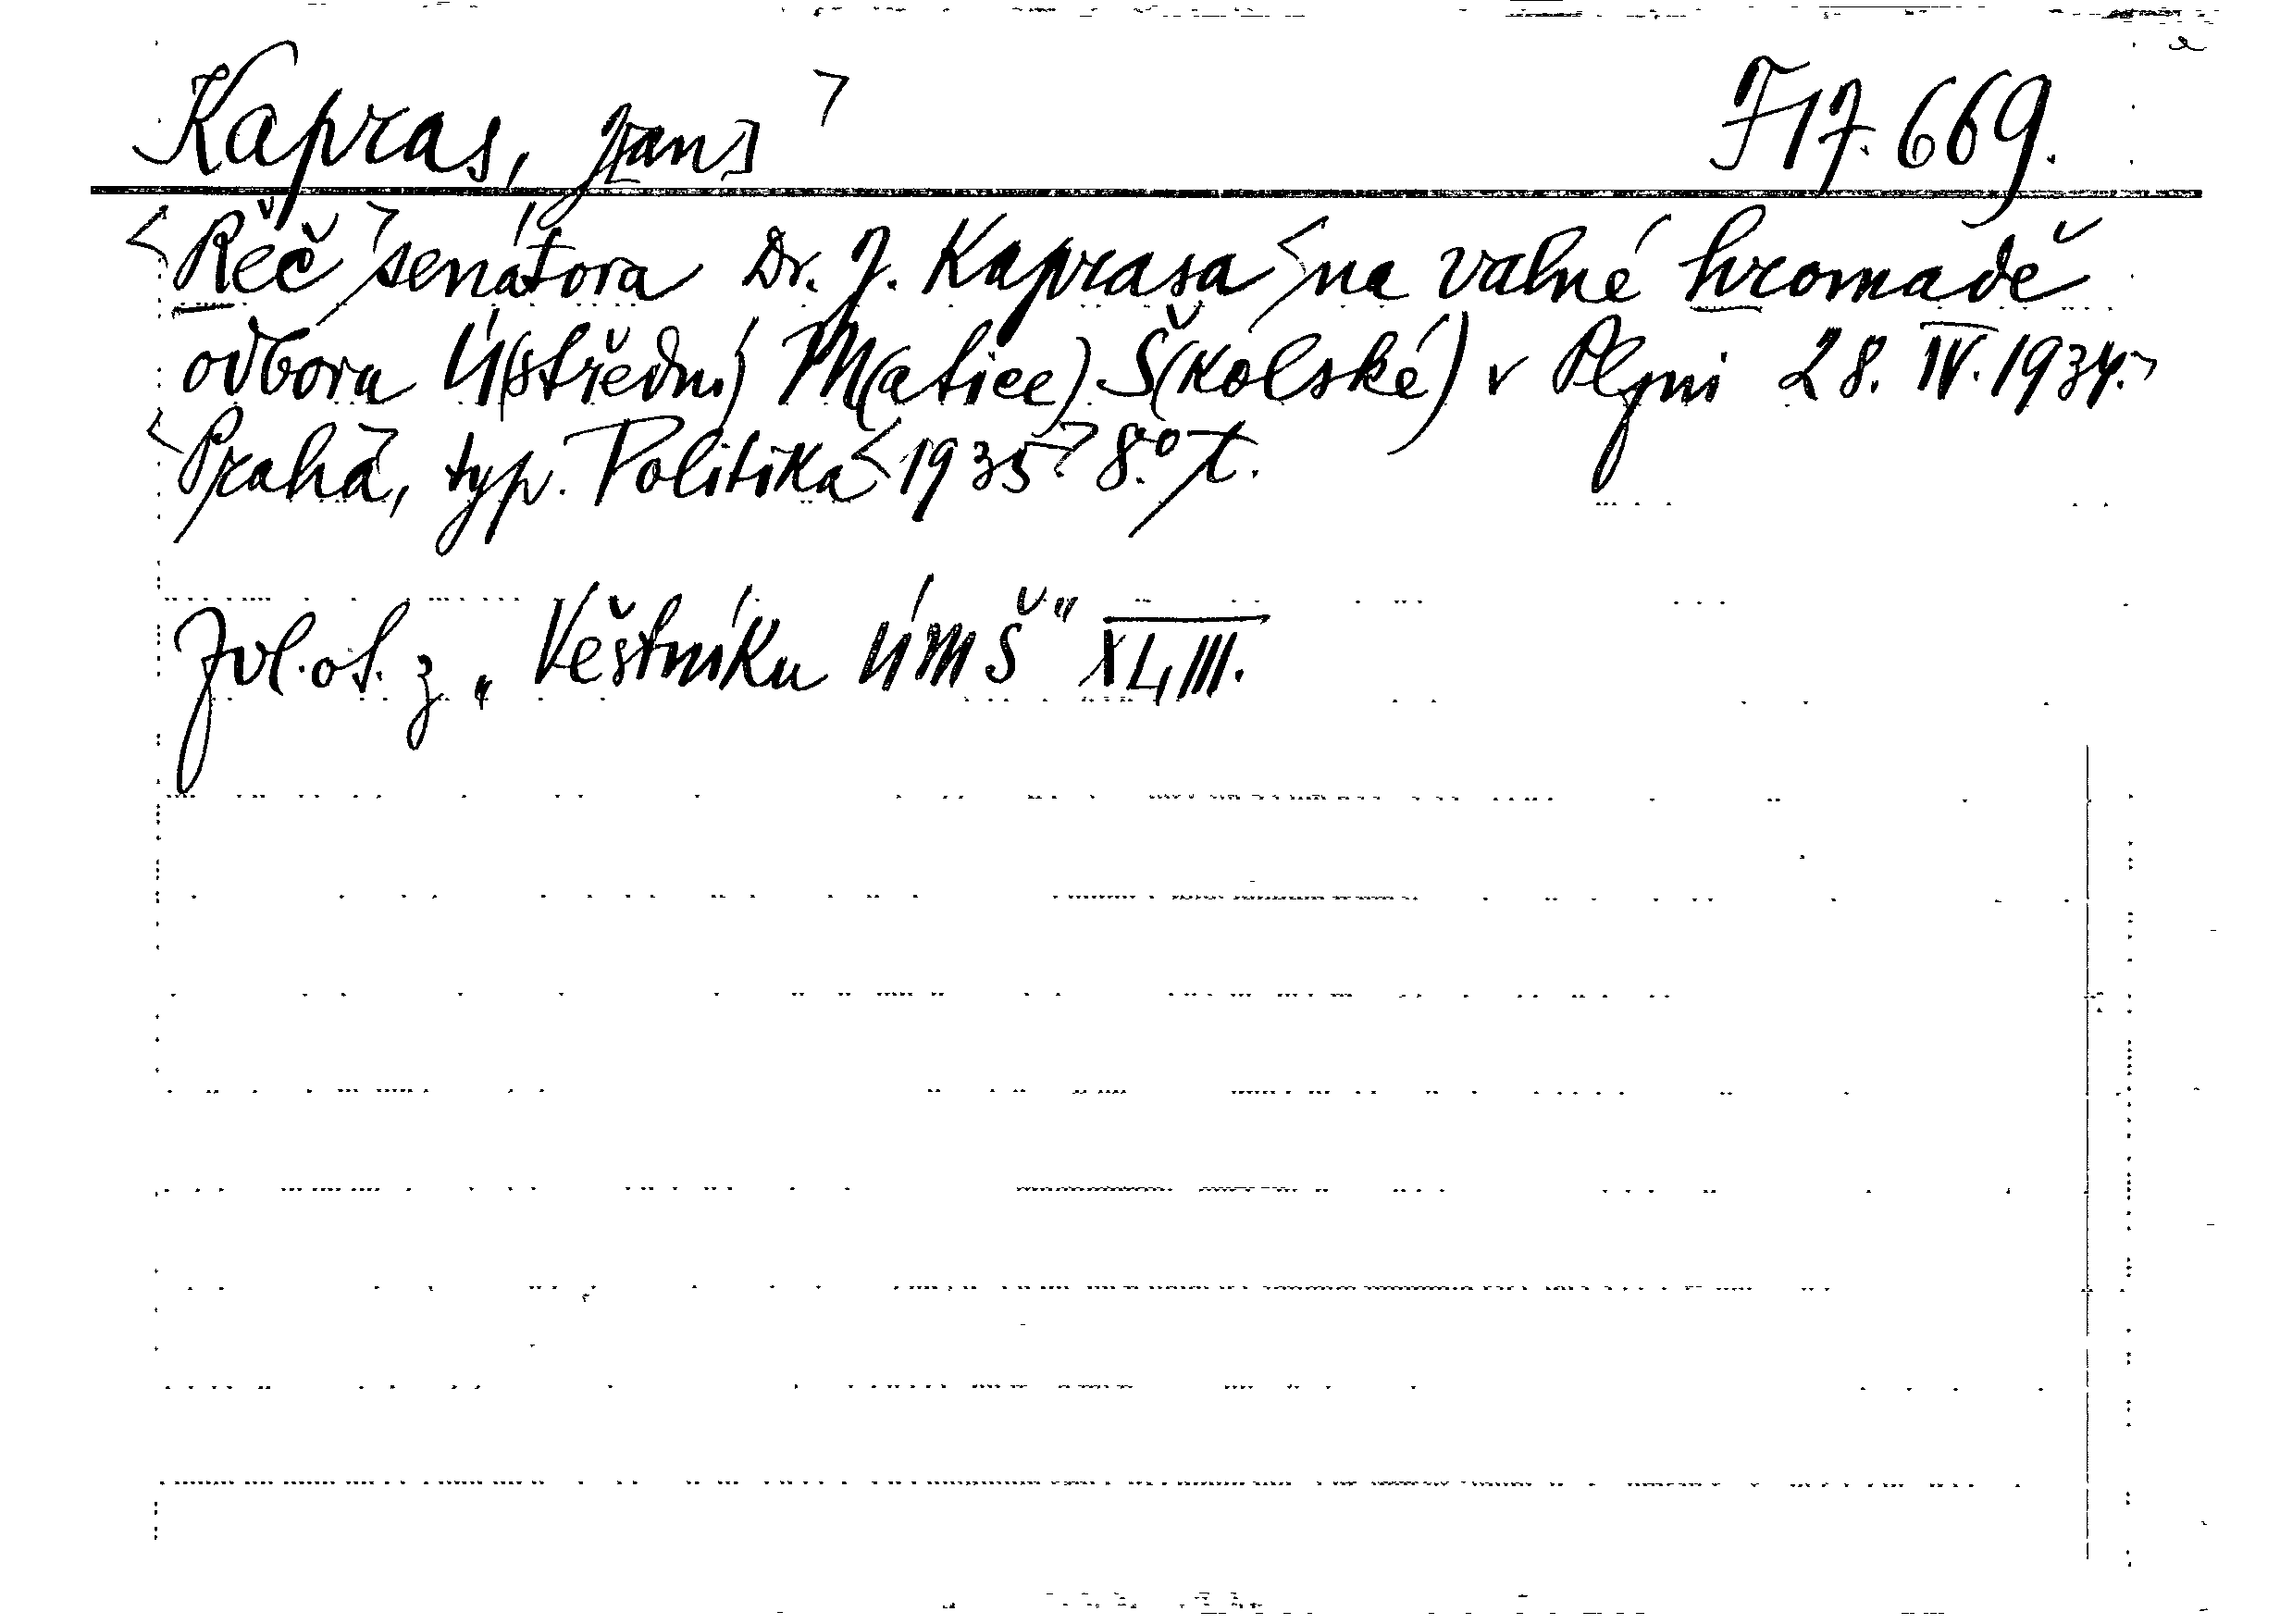 Kapras, J[an] F 17.669.
Řeč senátora Dr. J. Kaprasa na valné hromadě
odboru Ú(střední) M(atice) Š(kolské) v Plzni 28. IV. 1934.
Praha, typ. Politika 1935. 8.°
Zvl. ot. z „Věštníku ÚMŠ" XL, III.